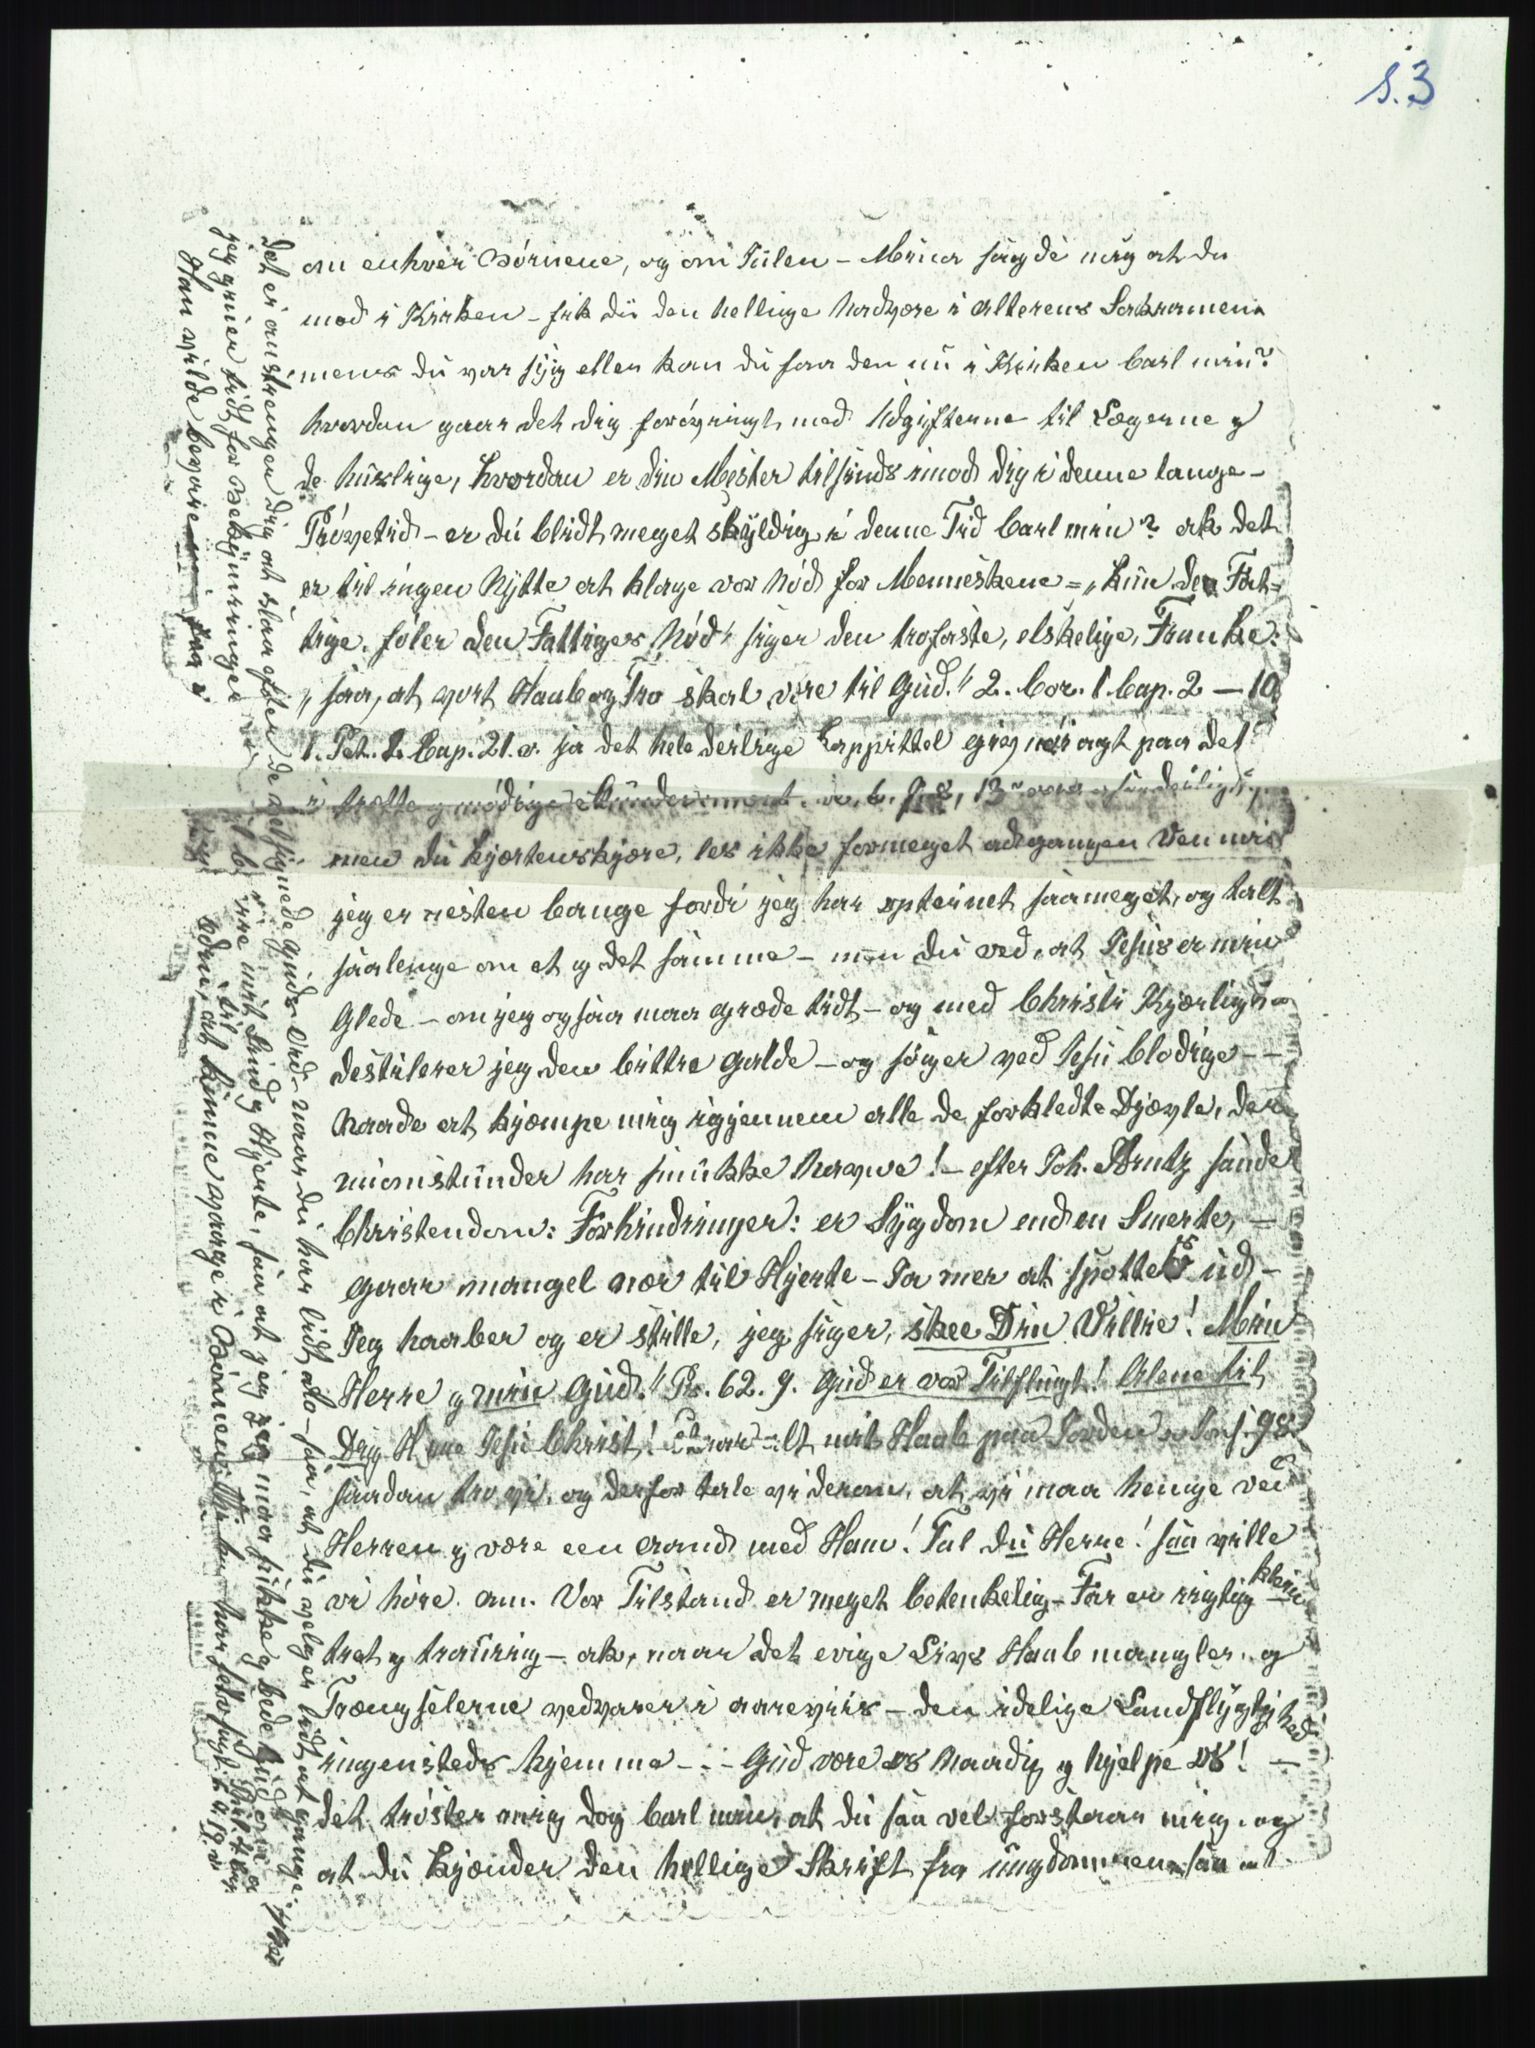 S. 3
om enhver Börnene, og om Julen – Mina sagde mig at du
mod i Kirken – fik du den hellige Nadvære i alterens Sakramen
mens du var syg eller kan du faa den nu i Kirken Carl min?
hvordan gaar det dig forövrigt, med Udgifterne til Lægerne og
de huslige, hvordan er din Mester tilsinds imod dig i denne lange –
Prövetid – er du blidt meget skyldig i denne Tid Carl min? ak det
er til ingen Nytte at klage vor Nöd for Menneskene = „Kun den Fat=
tige föler den Fattiges Nöd" siger den trofaste, elskelige, Franke:
„ saa, at vort Haab og Tro skal være til Gud." 2. Cor. 1. Cap. 2 – 10
1. Pet. 2. Cap. 21. v. ja det hele deilige Cappittel giv nöi agt paa det
i trætte og mödige Stunder
men du hjærtenskjære, les ikke formeget adgangen Ven min
jeg er nesten bange fordi jeg har opteinet saameget, og talt
saalenge om et og det samme – men du ved, at Jesus er min
Glede – om jeg ogsaa maa græde tidt – og med Christi Kjærlighed
destilerer jeg den bittre galde – og söger ved Jesu blodige –
Naade at kjæmpe mig igjennem alle de forkledte Djævle, der
niomstunder har smukke Navne! – efter Joh. Arntz sande
Christendom: Forhindringer: er Sygdom end en Smerte, –
gaar mangel nær til Hjerte – Ja mer at spottes ud –
Jeg haaber og er stille, jeg siger, skee Din Villie! Min
Herre og min Gud." Ps. 62. 9. Gud er vor Tilflugt! Alene til
Dig Herre Jesu Christ! Staar alt mit Haab paa Jorden
saadan tro vi, og derfor tale vi derom, at vi maa henge ved
Herren og være een aand med Ham! Tal du Herre! saa ville
vi höre. Am. Vor Tilstand er meget betenkelig – Far er rigtig klein
tret og traurig – ak, naar det evige Livs Haab mangler, og
Trængselerne vedvarer i aareviis – den idelige Landflygtighed
ingensteds hjemme – .. – Gud være os Naadig og hjelpe os! –
det tröster mig dog Carl min, at du saa vel forstaar mig, og
at du kjænder den hellige Skrift fra ungdommen saa
det er anstrenger dig at slaa efter de velsignede Guds Ord – naar du har lidt – saa, at du velger lidt at gange.
jeg griner tidt for Bekymringer mit Sind og Hjerte, saa at jeg maa sukke og bede Gud
Han vilde bevare at kunne vaage i Bönnen